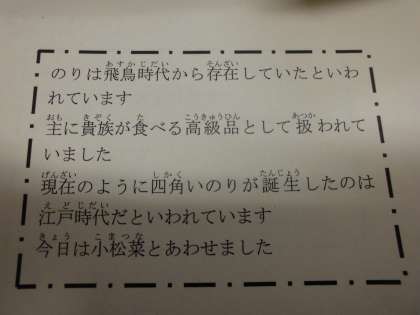 のりは飛鳥時代から存在していたといわ
れています
主に貴族が食べる高級品として扱われて
いました
現在のように四角いのりが誕生したのは
江戸時代だといわれています
今日は小松菜とあわせました